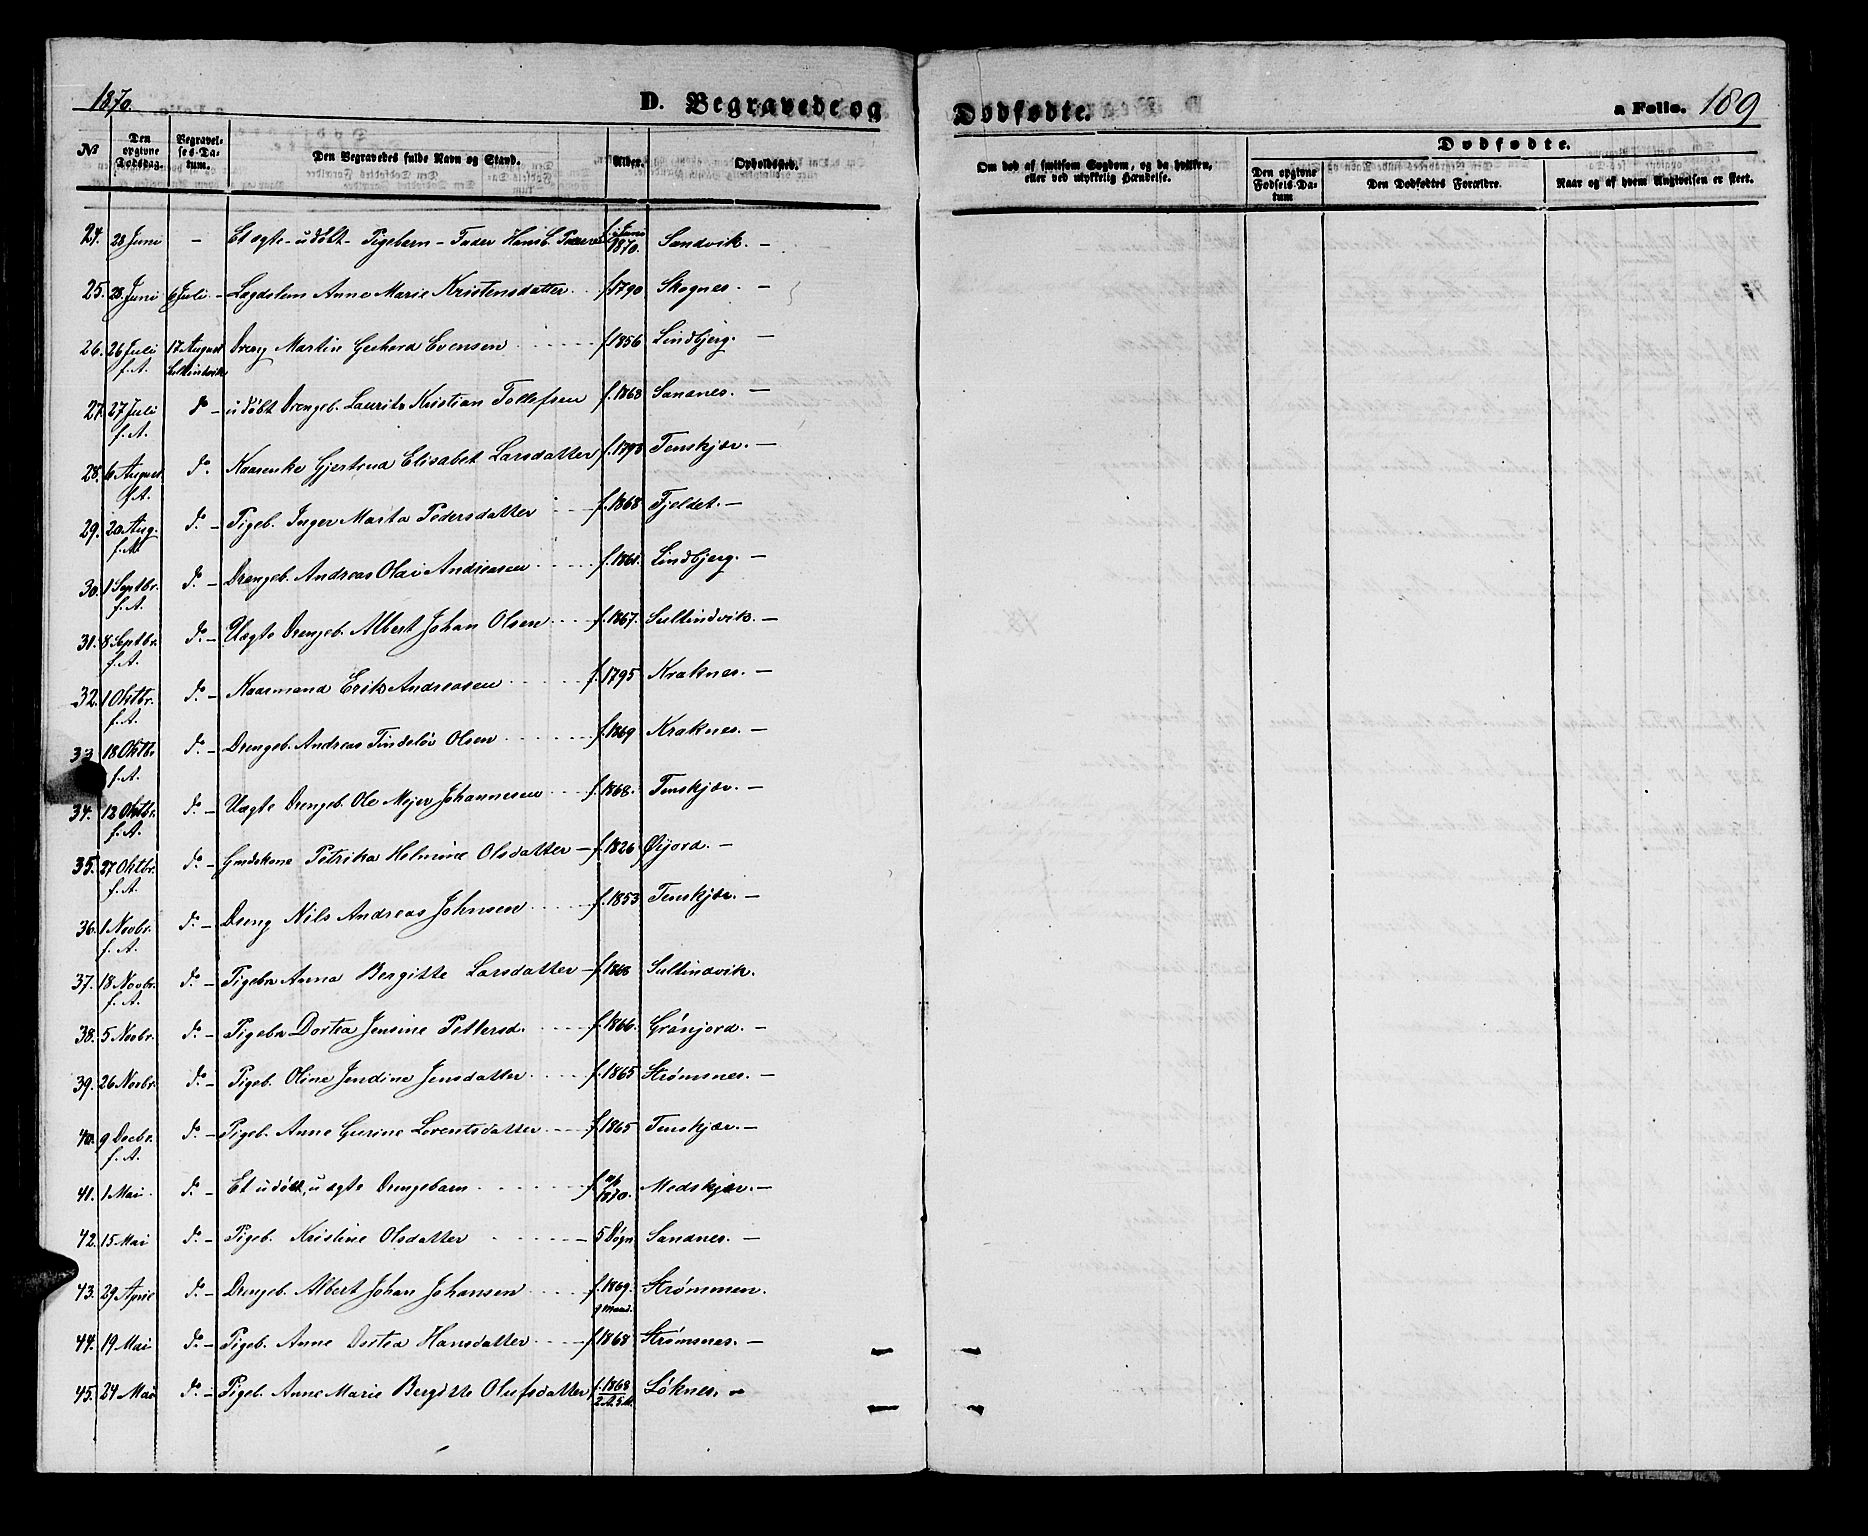 1870.
D. Begravede og Dødfødte.
a Folio. 189
No
Den opgivne Dødsdag.
Begravelses-Datum.
Den Begravedes fulde Navn og Stand.
Alder.
Opholdssted.
Om død af smitsom Sygdom, og da hvilken, eller ved ulykkelig Hændelse.
Dødfødte.
Den opgivne Fødsels-Datum
Den Dødfødtes Forældre.
Naar og af hvem Angivelsen er skeet.
24. 28 Juni - Et ægte - udøbt - Pigebarn - Fader Hans f. Juni 1870. Sandvik. -
25. 28. Juni 6 Juli - Lægdslem Anne Marie Kristensdatter f. 1790 Skognes. -
26. 26 Juli f. A. 17 August Dreng Martin Gerhard Evensen f. 1856 Lindbjerg. -
27. 27 Juli f. A. do - udøbt Drengeb. Laurits Kristian Tollefsen f. 1868 Sandnes. -
28. 6 August f. A. do Kaarenke Gjertrud Elisabet Larsdatter f. 1793 Tenskjær. -
29. 20 Aug. f. A. do - Pigeb. Inger Marta Pedersdatter f. 1868 Fjeldet. -
30. 1 Septbr. f. A. do - Drengeb. Andreas Olai Andreasen f. 1861. Lindbjerg. -
31. 8 Septbr. f. A. do - Uægte Drengeb. Albert Johan Olsen f. 1867. Sultindvik. -
32. 1 Oktbr. f. A. do - Kaarmand Erik Andreasen f. 1795 Kraknes. -
33 18 Oktbr f. A. do - Drengeb. Andreas Tindeløv Olsen f. 1869 Kraknes. -
34. 12 Oktbr. f. A. do - Uægte Drengeb. Ole Mejer Johannesen f. 1868. Tenskjær. -
35. 27 Oktbr. f. A. do - Gmdskone Petrika Helmine Olsdatter - f. 1826 Øijord. -
36. 1 Novbr. f. A. do - Dreng Nils Andreas Johnsen f. 1853 Tenskjær. -
37. 18 Novbr. f. A. do - Pigebn Anna Bergitte Larsdatter - f. 1868 Sultindvik.
38. 5 Novbr. do - Pigebn Dortea Jensine Pettersd. f. 1866. Grönjord. -
39. 26 Novbr. do - Pigeb. Oline Jendine Jensdatter f. 1865 Strømsnes. -
40. 9 Decbr. f. A. do - Pigeb. Anne Gurine Lorentsdatter f. 1865 Tenskjær. -
41. 1 Mai do - Et udøbt, uægte Drengebarn f. 1870. Medskjær. -
42. 15 Mai do - Pigeb. Kristine Olsdatter - 5 Døgn Sandnes. -
43. 29 April do - Drengeb. Albert Johan Johansen f. 1869. 9 Maan. Strømmen.
44. 19 Mai do - Pigeb. Anne Dortea Hansdatter f. 1868 Strømsnes. -
45. 24 Mai do - Pigeb. Anne Marie Bergitte Olufsdatter f. 1868 2 A. 5 M. Löknes. -